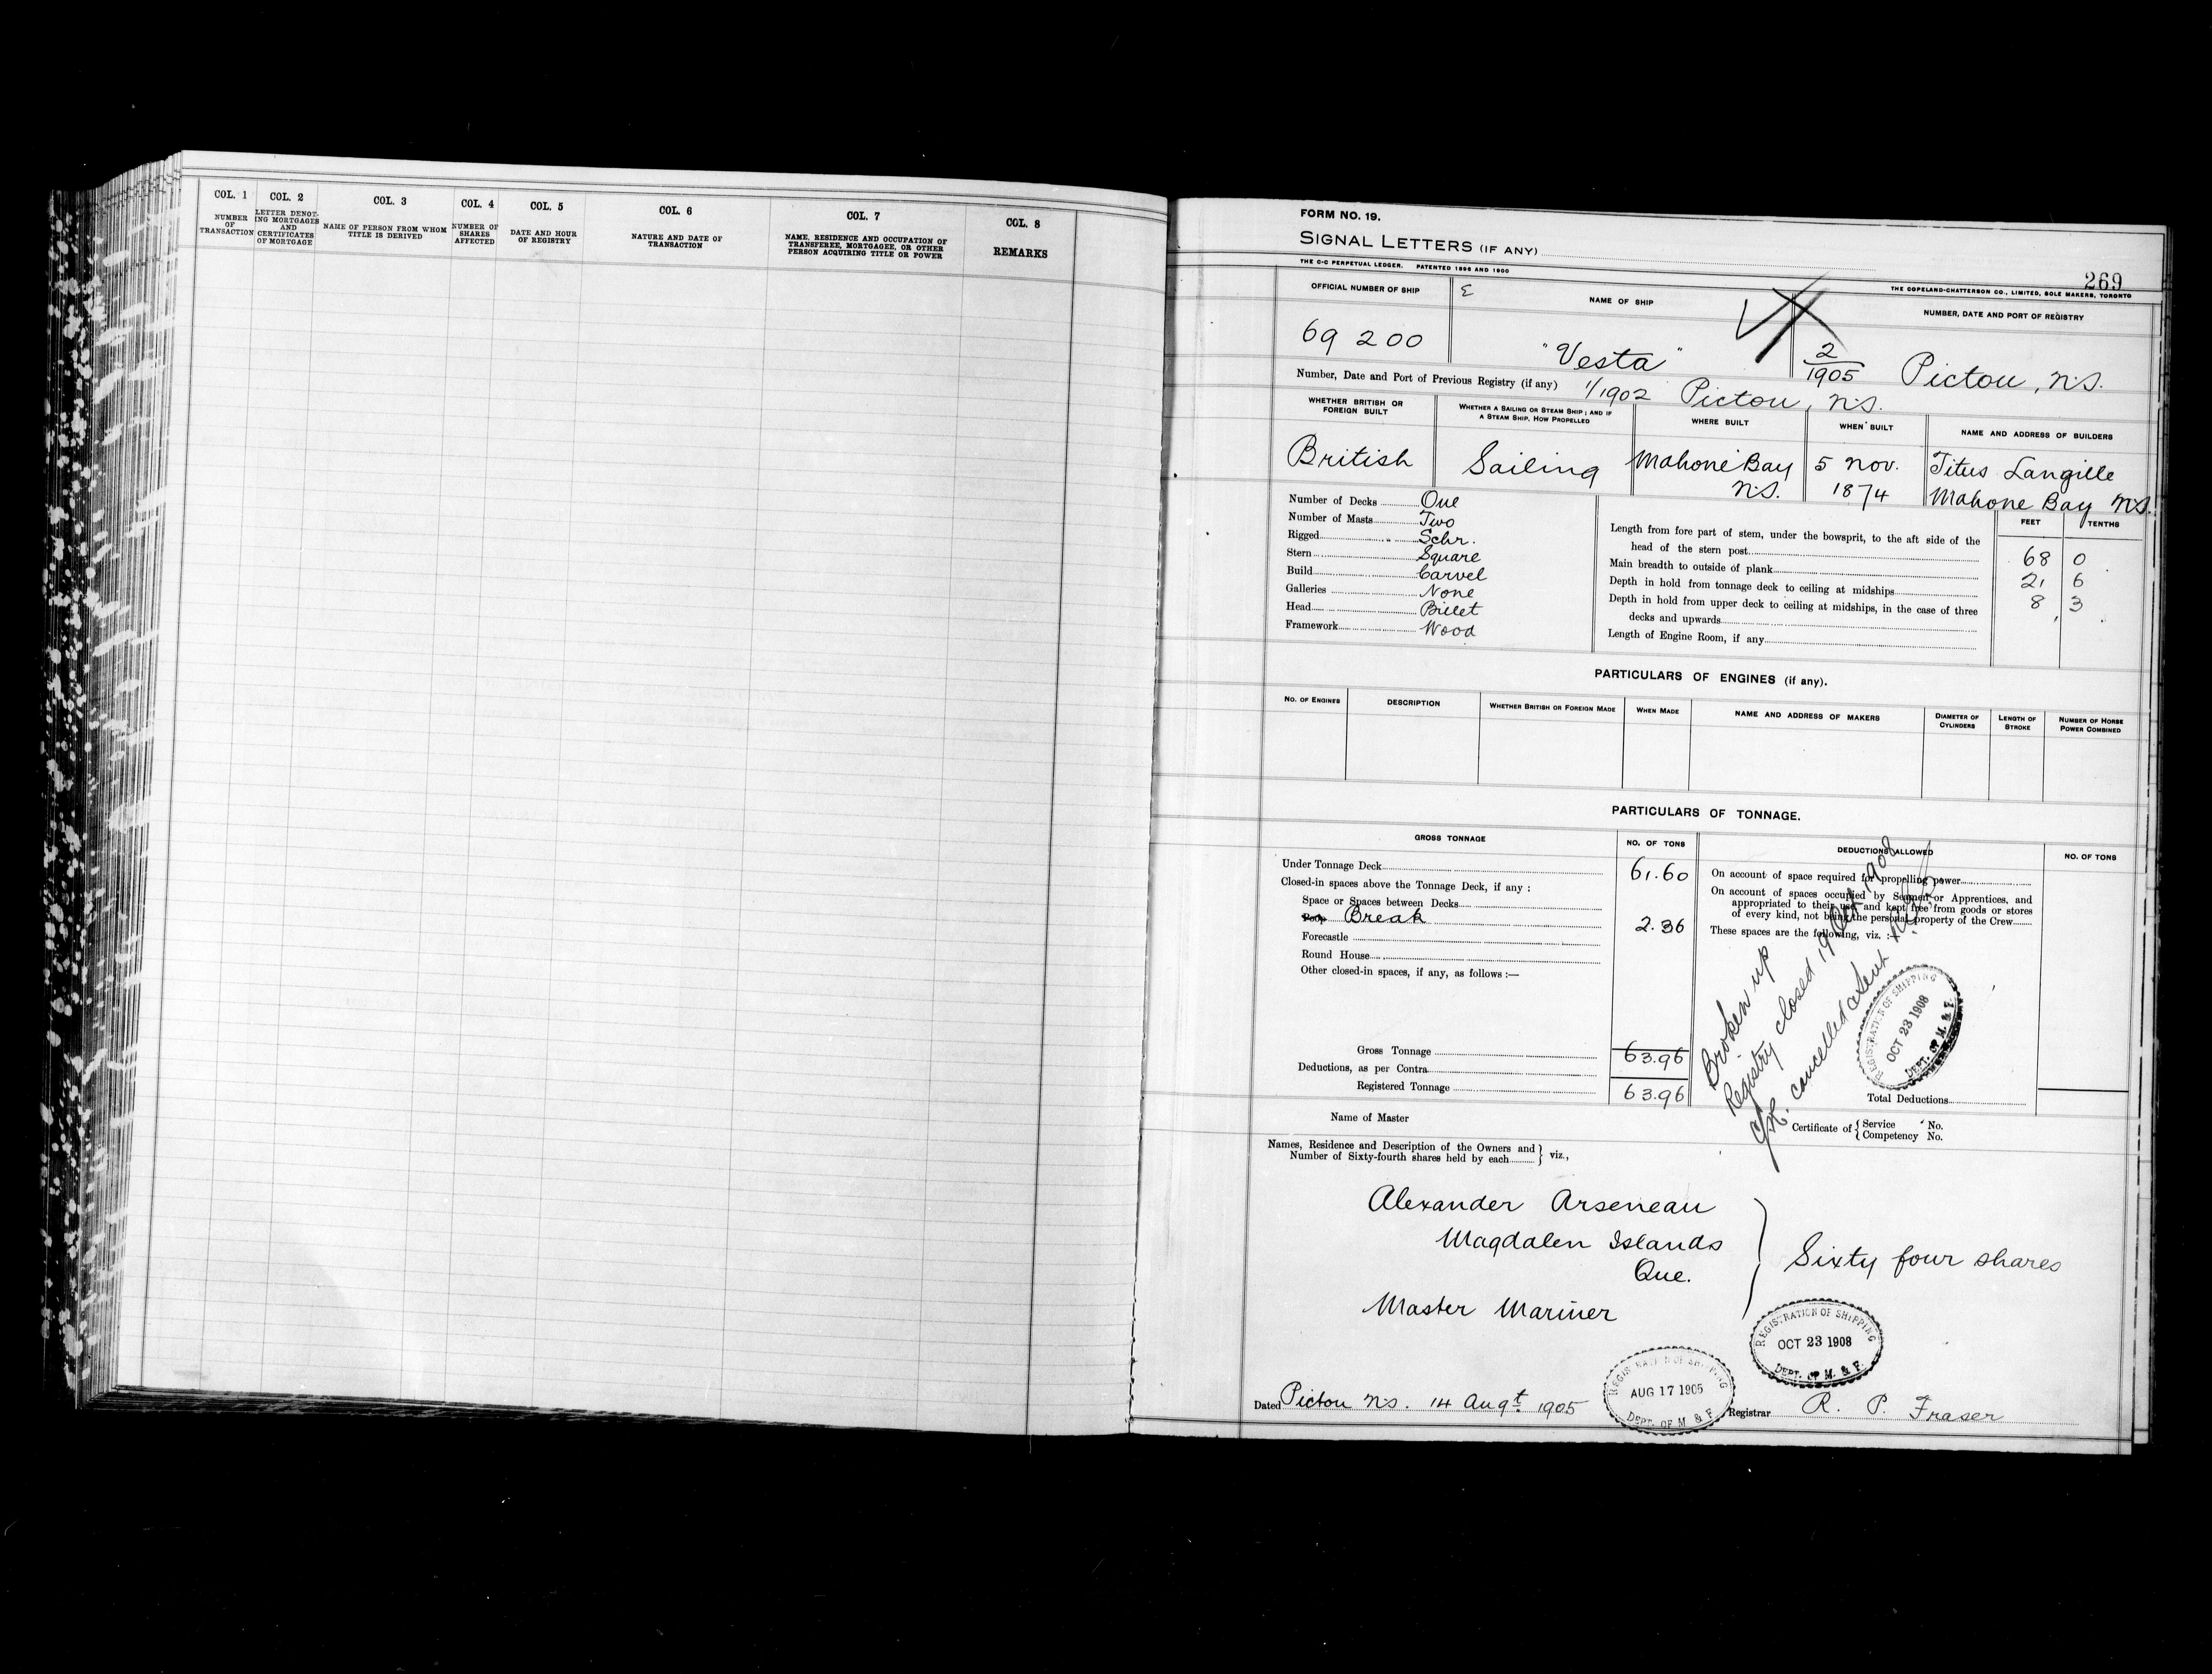 COL. 1
NUMBER OF TRANSACTION
COL. 2
LETTER DENOTING MORTGAGES AND CERTIFICATES OF MORTGAGE
COL. 3
NAME OF PERSON FROM WHOM TITLE IS DERIVED
COL. 4
NUMBER OF SHARES AFFECTED
COL. 5
DATE AND HOUR OF REGISTRY
COL. 6
NATURE AND DATE OF TRANSACTION
COL. 7
NAME, RESIDENCE AND OCCUPATION OF TRANSFEREE, MORTGAGEE, OR OTHER PERSON ACQUIRING TITLE OR POWER
COL. 8
REMARKS
FORM NO. 19.
SIGNAL LETTERS (IF ANY)
THE C-C PERPETUAL LEDGER. PATENTED 1896 AND 1900
269
THE COPELAND-CHATTERSON CO., LIMITED, SOLE MAKERS, TORONTO
OFFICIAL NUMBER OF SHIP
NAME OF SHIP
NUMBER, DATE AND PORT OF REGISTRY
69 200
"Vesta"
2/1905 Pictou, N.S.
Number, Date and Port of Previous Registry (if any) 1/1902 Pictou, N.S.
WHETHER BRITISH OR FOREIGN BUILT
WHETHER A SAILING OR STEAM SHIP; AND IF A STEAM SHIP, HOW PROPELLED
WHERE BUILT
WHEN BUILT
NAME AND ADDRESS OF BUILDERS
British
Sailing
Mahone Bay N.S.
5 Nov. 1874
Titus Langille
Mahone Bay N.S.
Number of Decks One
Number of Masts Two
Rigged Schr.
Stern Square
Build Carvel
Galleries None
Head Billet
Framework Wood
FEET TENTHS
Length from fore part of stem, under the bowsprit, to the aft side of the
head of the stern post 68 0
Main breadth to outside of plank 21 6
Depth in hold from tonnage deck to ceiling at midships 8 3
Depth in hold from upper deck to ceiling at midships, in the case of three
decks and upwards
Length of Engine Room, if any
PARTICULARS OF ENGINES (if any).
NO. OF ENGINES
DESCRIPTION
WHETHER BRITISH OR FOREIGN MADE
WHEN MADE
NAME AND ADDRESS OF MAKERS
DIAMETER OF CYLINDERS
LENGTH OF STROKE
NUMBER OF HORSE POWER COMBINED
PARTICULARS OF TONNAGE.
GROSS TONNAGE
NO. OF TONS
DEDUCTIONS ALLOWED
NO. OF TONS
Under Tonnage Deck 61.60
Closed-in spaces above the Tonnage Deck, if any :
Space or Spaces between Decks
Poop Break 2.36
Forecastle
Round House
Other closed-in spaces, if any, as follows :—
Gross Tonnage 63.96
Deductions, as per Contra
Registered Tonnage 63.96
On account of space required for propelling power
On account of spaces occupied by Seamen or Apprentices, and
appropriated to their use and kept free from goods or stores
of every kind, not being the personal property of the Crew
These spaces are the following, viz. :
Broken up
Registry closed 19 Oct. 1908
C/R. cancelled & sent
REGISTRATION OF SHIPPING
OCT 23 1908
DEPT. OF M. & F.
Total Deductions
Name of Master
Certificate of { Service No.
{ Competency No.
Names, Residence and Description of the Owners and
Number of Sixty-fourth shares held by each } viz.,
Alexander Arseneau
Magdalen Islands
Que.
Master Mariner
Sixty four shares
REGISTRATION OF SHIPPING
OCT 23 1908
DEPT. OF M. & F.
REGISTRATION OF SHIPPING
AUG 17 1905
DEPT. OF M & F
Dated Pictou N.S. 14 Augt 1905
Registrar R. P. Fraser